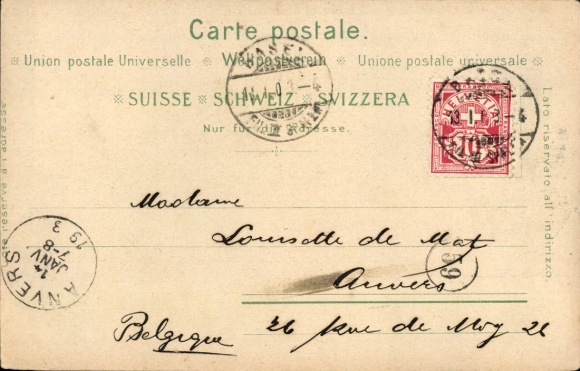 Carte postale.
Union postale Universelle ※ Weltpostverein ※ Unione postale universale
※ SUISSE ※ SCHWEIZ ※ SVIZZERA ※
Nur für die Adresse.
Côté réservé à l'adresse
Lato riservato all' indirizzo
BASEL
HELVETIA
10
ANVERS
14
JANV.
7-8
19 3
Madame
Louisette de Mat
Anvers
Belgique 26 Rue de Moy 26